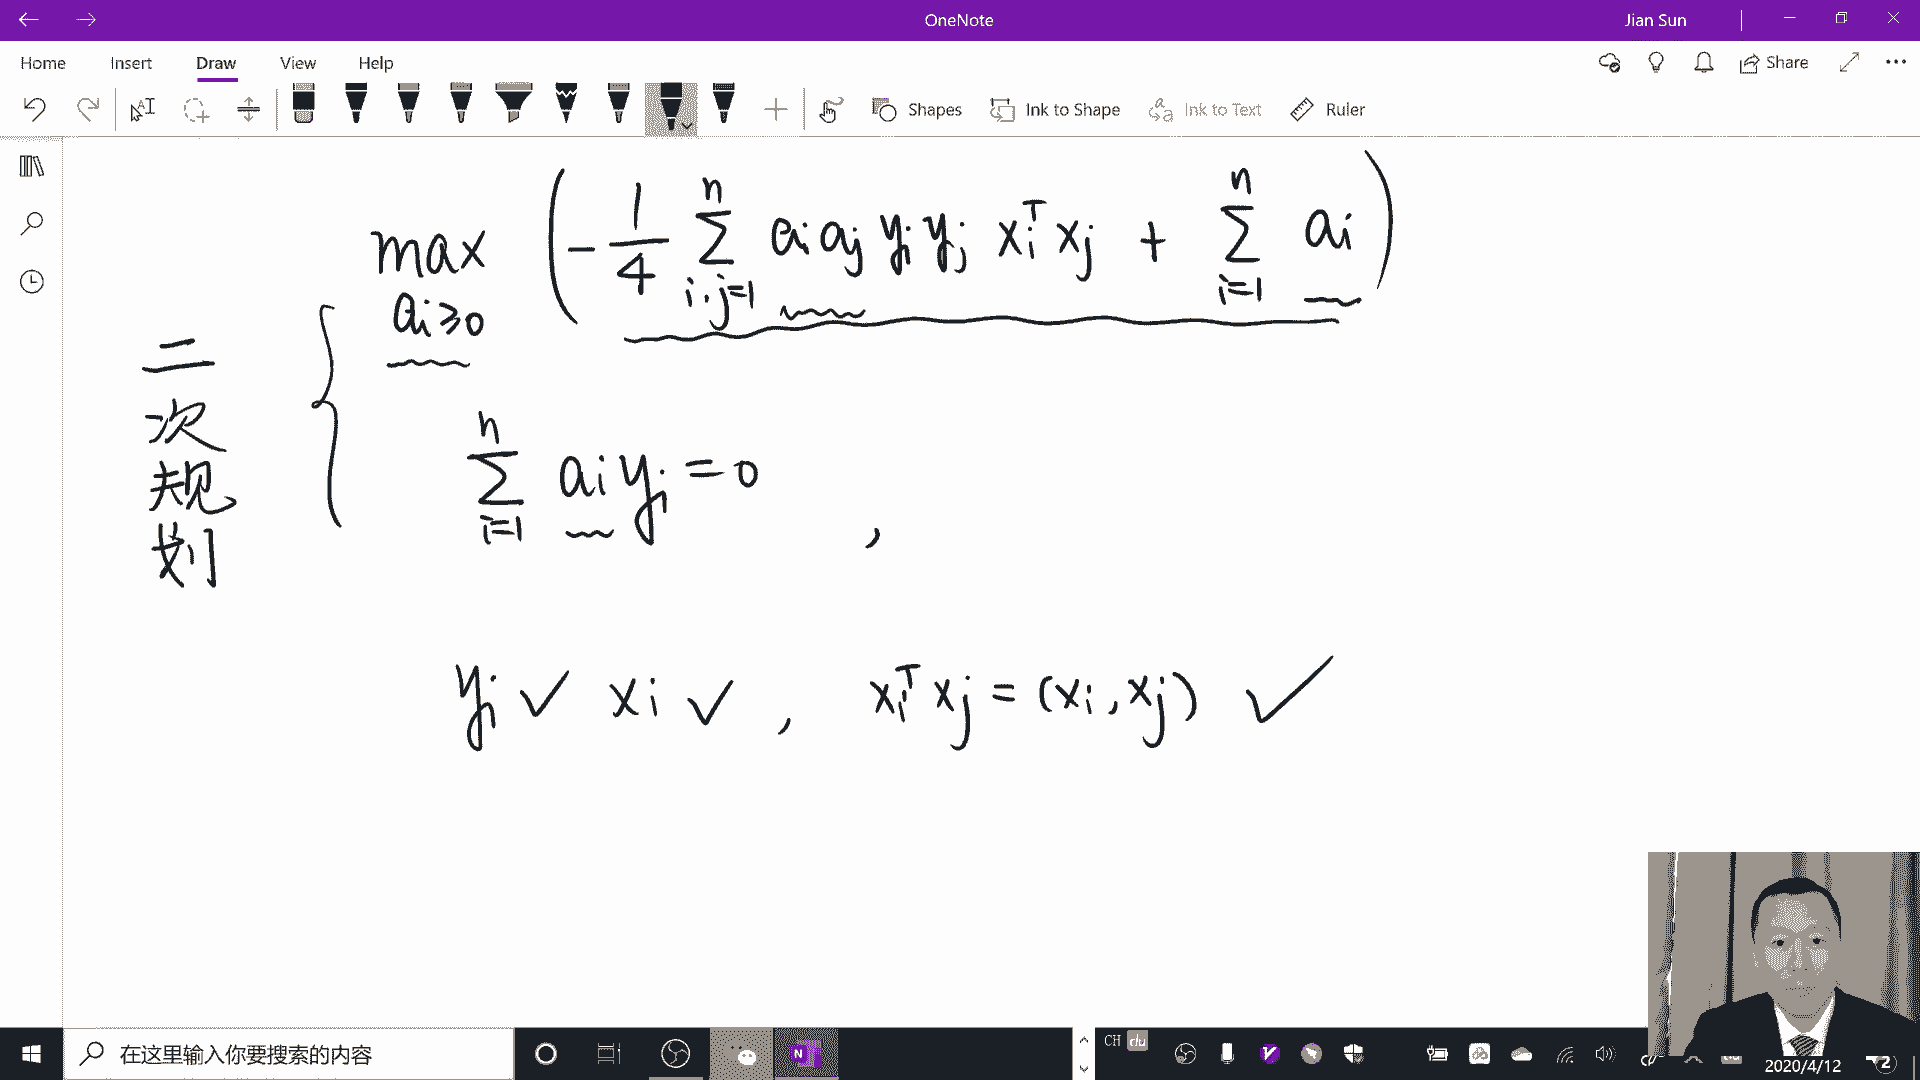 OneNote
Jian Sun
Home Insert Draw View Help
Share
Shapes Ink to Shape Ink to Text Ruler
max ( - 1/4 n Σ i,j=1 ai aj yi yj xiᵀ xj + n Σ i=1 ai )
ai ≥ 0
二次规划
n Σ i=1 ai yi = 0 ,
yi ✓ xi ✓ , xiᵀ xj = (xi, xj) ✓
在这里输入你要搜索的内容
CH du
2020/4/12
2